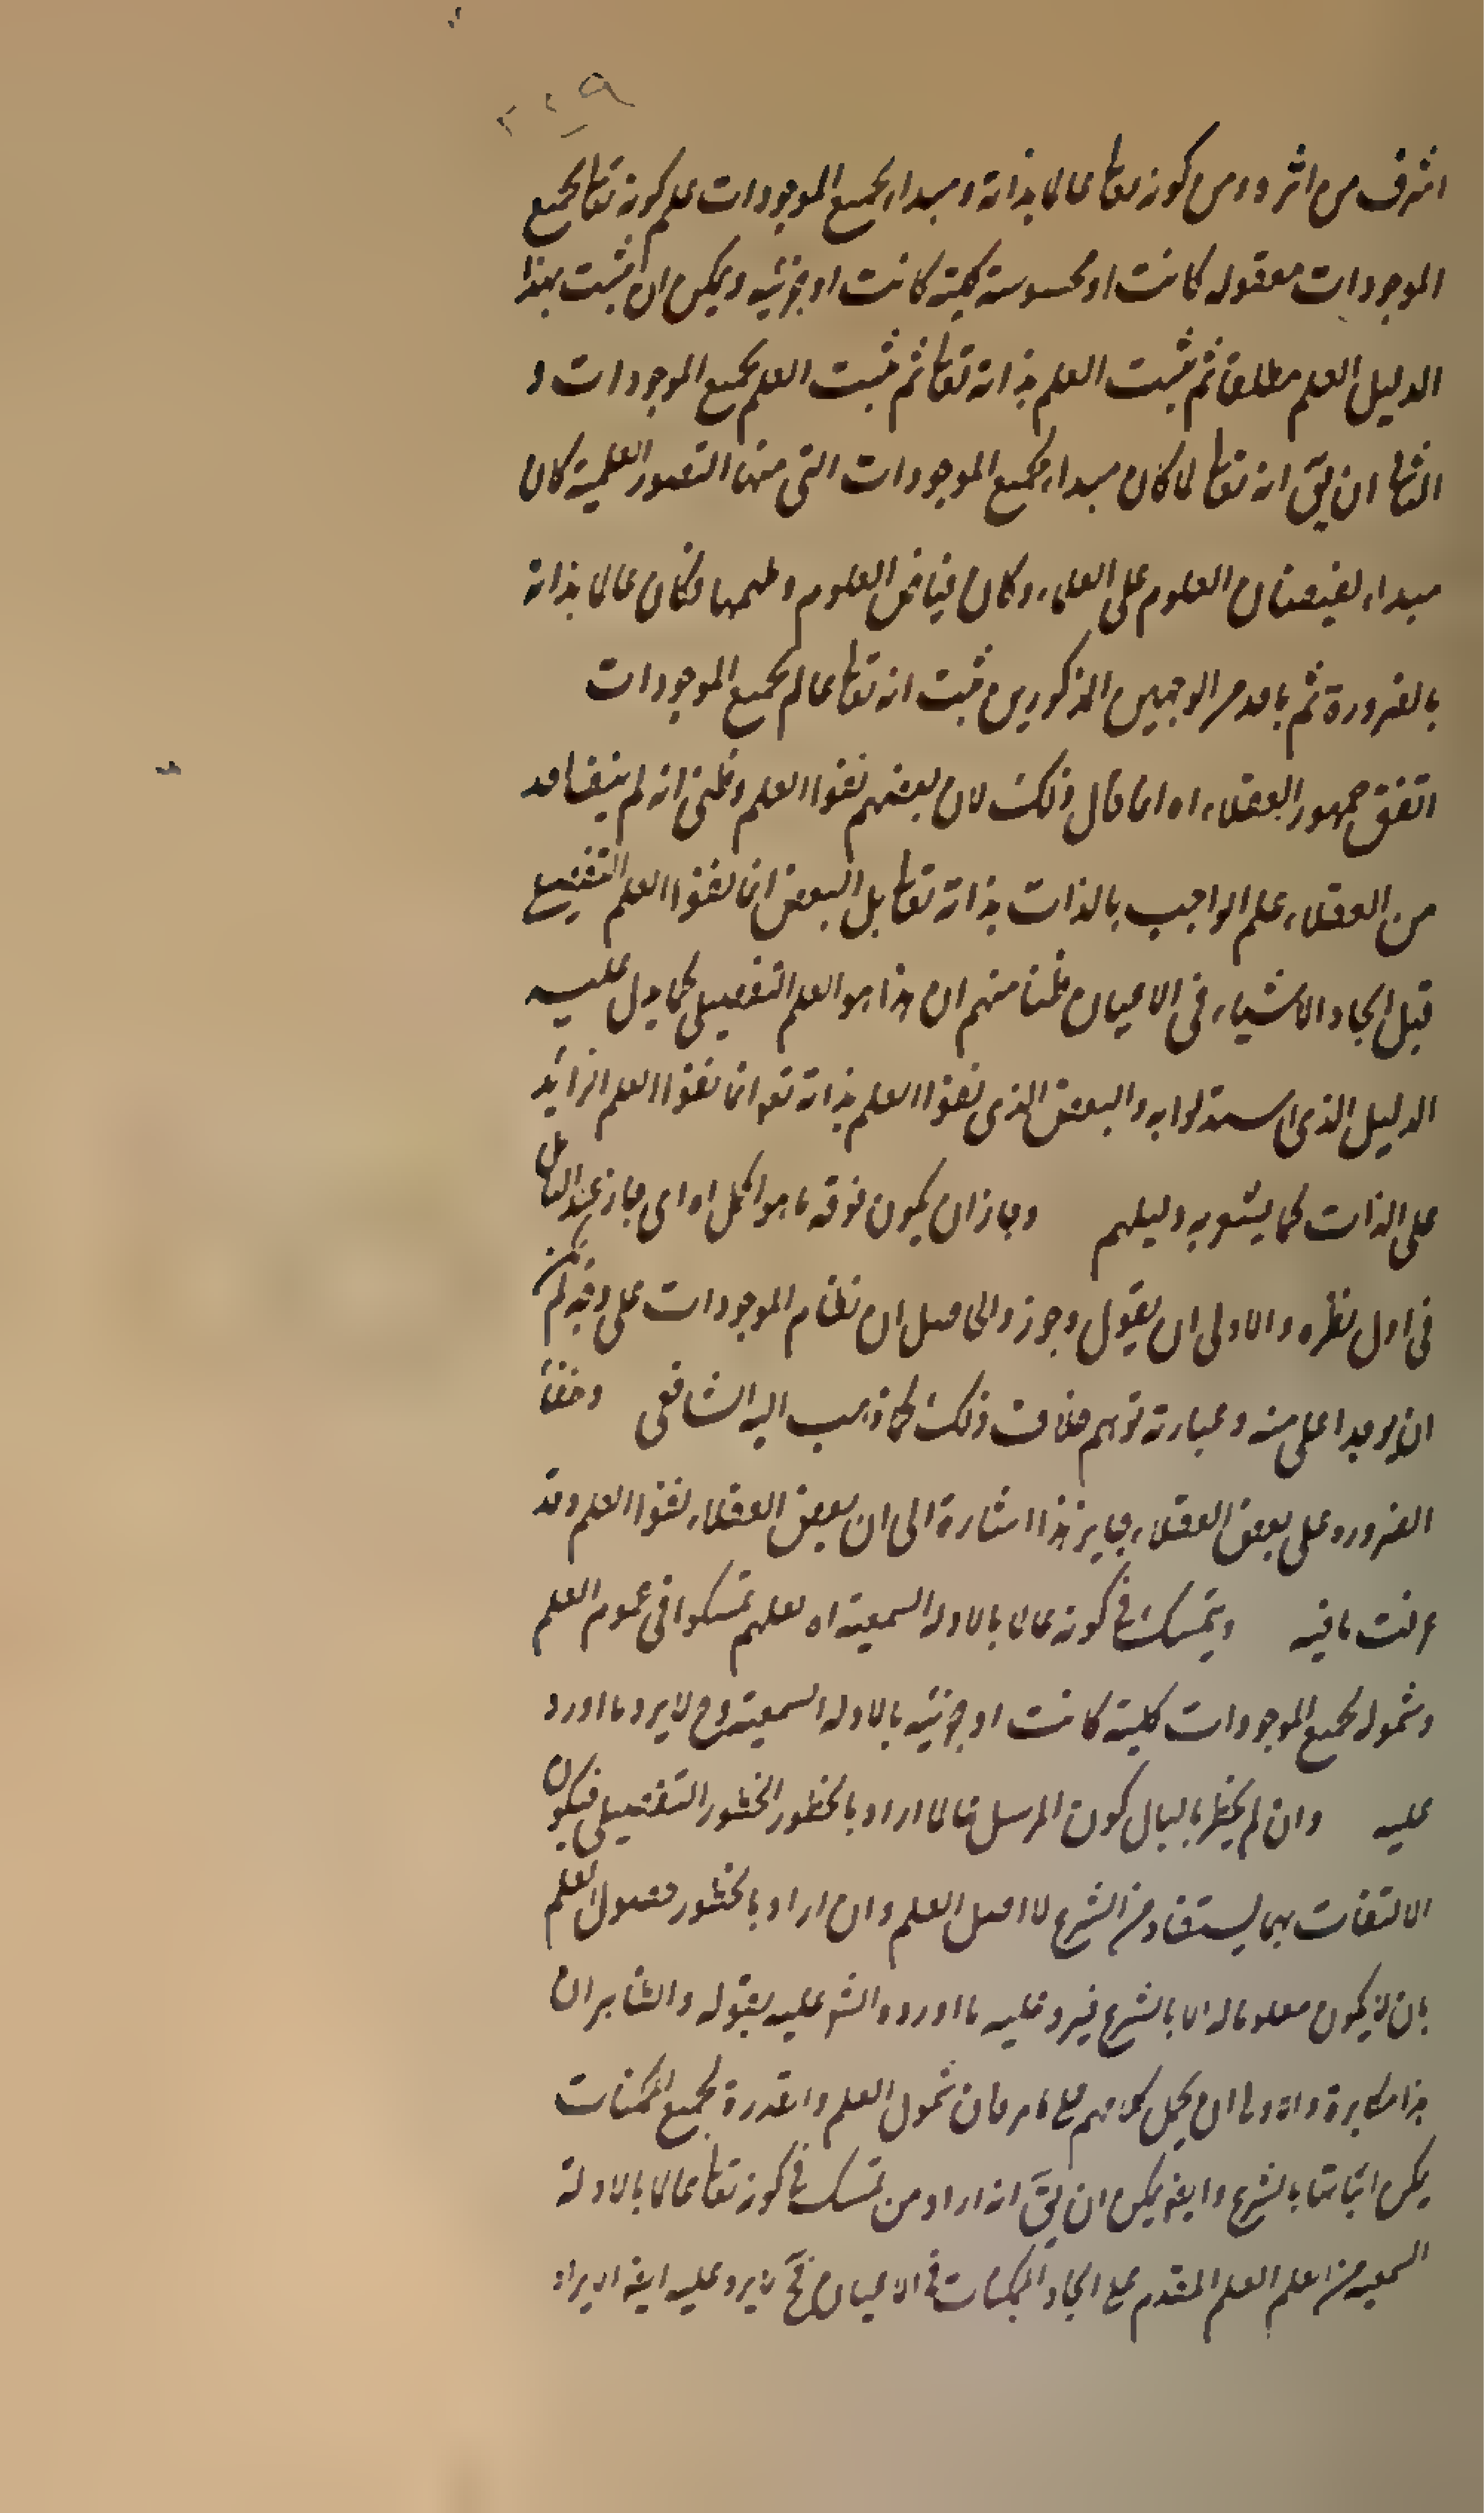 ٢٢٩
اشرف من اثره ومن كونه تعا عالما بذاته ومبداء لجميع الموجودات علم كونه تعا لجميع
الموجودات معقوله كانت او محسوسة كلية كانت او جزئيه ويمكن ان يثبت بهذا
الدليل العلم مطلقا ثم يثبت العلم بذاته تعا ثم يثبت العلم بجميع الموجودات و
الثا ان يق انه تعا لما كان مبداء لجميع الموجودات التى منها التصور العلمية كان
مبداء لفيضان العلوم على العلماء وكان فياض العلوم وملهمها فكان عالما بذاته
بالضرورة ثم باحد من الوجهين المذكورين يثبت انه تعا عالم بجميع الموجودات
اتفق جمهور العقلاء اه انما قال ذلك لان بعضهم نفوا العلم وظنى انه لم ينف احد
من العقلاء علم الواجب بالذات بذاته تعا بل البعض انما نفوا العلم التفصيلى
قبل ايجاد الاشياء فى الاعيان ظنا منهم ان هذا هو العلم التفصيلى كما يدل عليه
الدليل الذى استدلوا به والبعض الذى نفوا العلم بذاته تعه انما نفوا العلم الزائد
على الذات كما يشعر به دليلهم وجاز ان يكون فوقه ما هو اكمل اه اى جاز عند العاقل
فى اول نظره والاولى ان يقول وجوز والحاصل ان نظام الموجودات على وجه لم يمكن
ان يوجد اعلى منه وعبارته توهم خلاف ذلك كما ذهب اليه الشافعى وخفاء
الضروره على بعض العقلاء جايز هذا اشارة الى ان بعض العقلاء نفوا العلم وقد
عرفت ما فيه ويتمسك فى كونه عالما بالادله السمعيه اه لعلهم تمسكوا فى عموم العلم
وشموله لجميع الموجودات كلية كانت او جزئيه بالادله السمعية وح لا يرد ما اورد
عليه وان لم يخطر بالبال كون المرسل عالما اراد بالخطور الخطور التفصيلى فيكون
الالتفات بهما يستفاد من الشرع لا اصل العلم وان اراد بالخطور حصول العلم
بان لا يكون معلوما له الا بالشرع فيرد عليه ما اورده الش عليه بقوله والظاهر ان
هذا مكابرة والاولى ان يحمل كلامهم على ما مر فان شمول العلم والقدرة لجميع الممكنات
يمكن اثباتها بالشرع وايض يمكن ان يق انه اراد من تمسك فى كونه تعا عالما بالادلة
السمعيه من العلم العلم المتقدم على ايجاد الممكنات فى الاعيان فح لا يرد عليه ايض الايراد